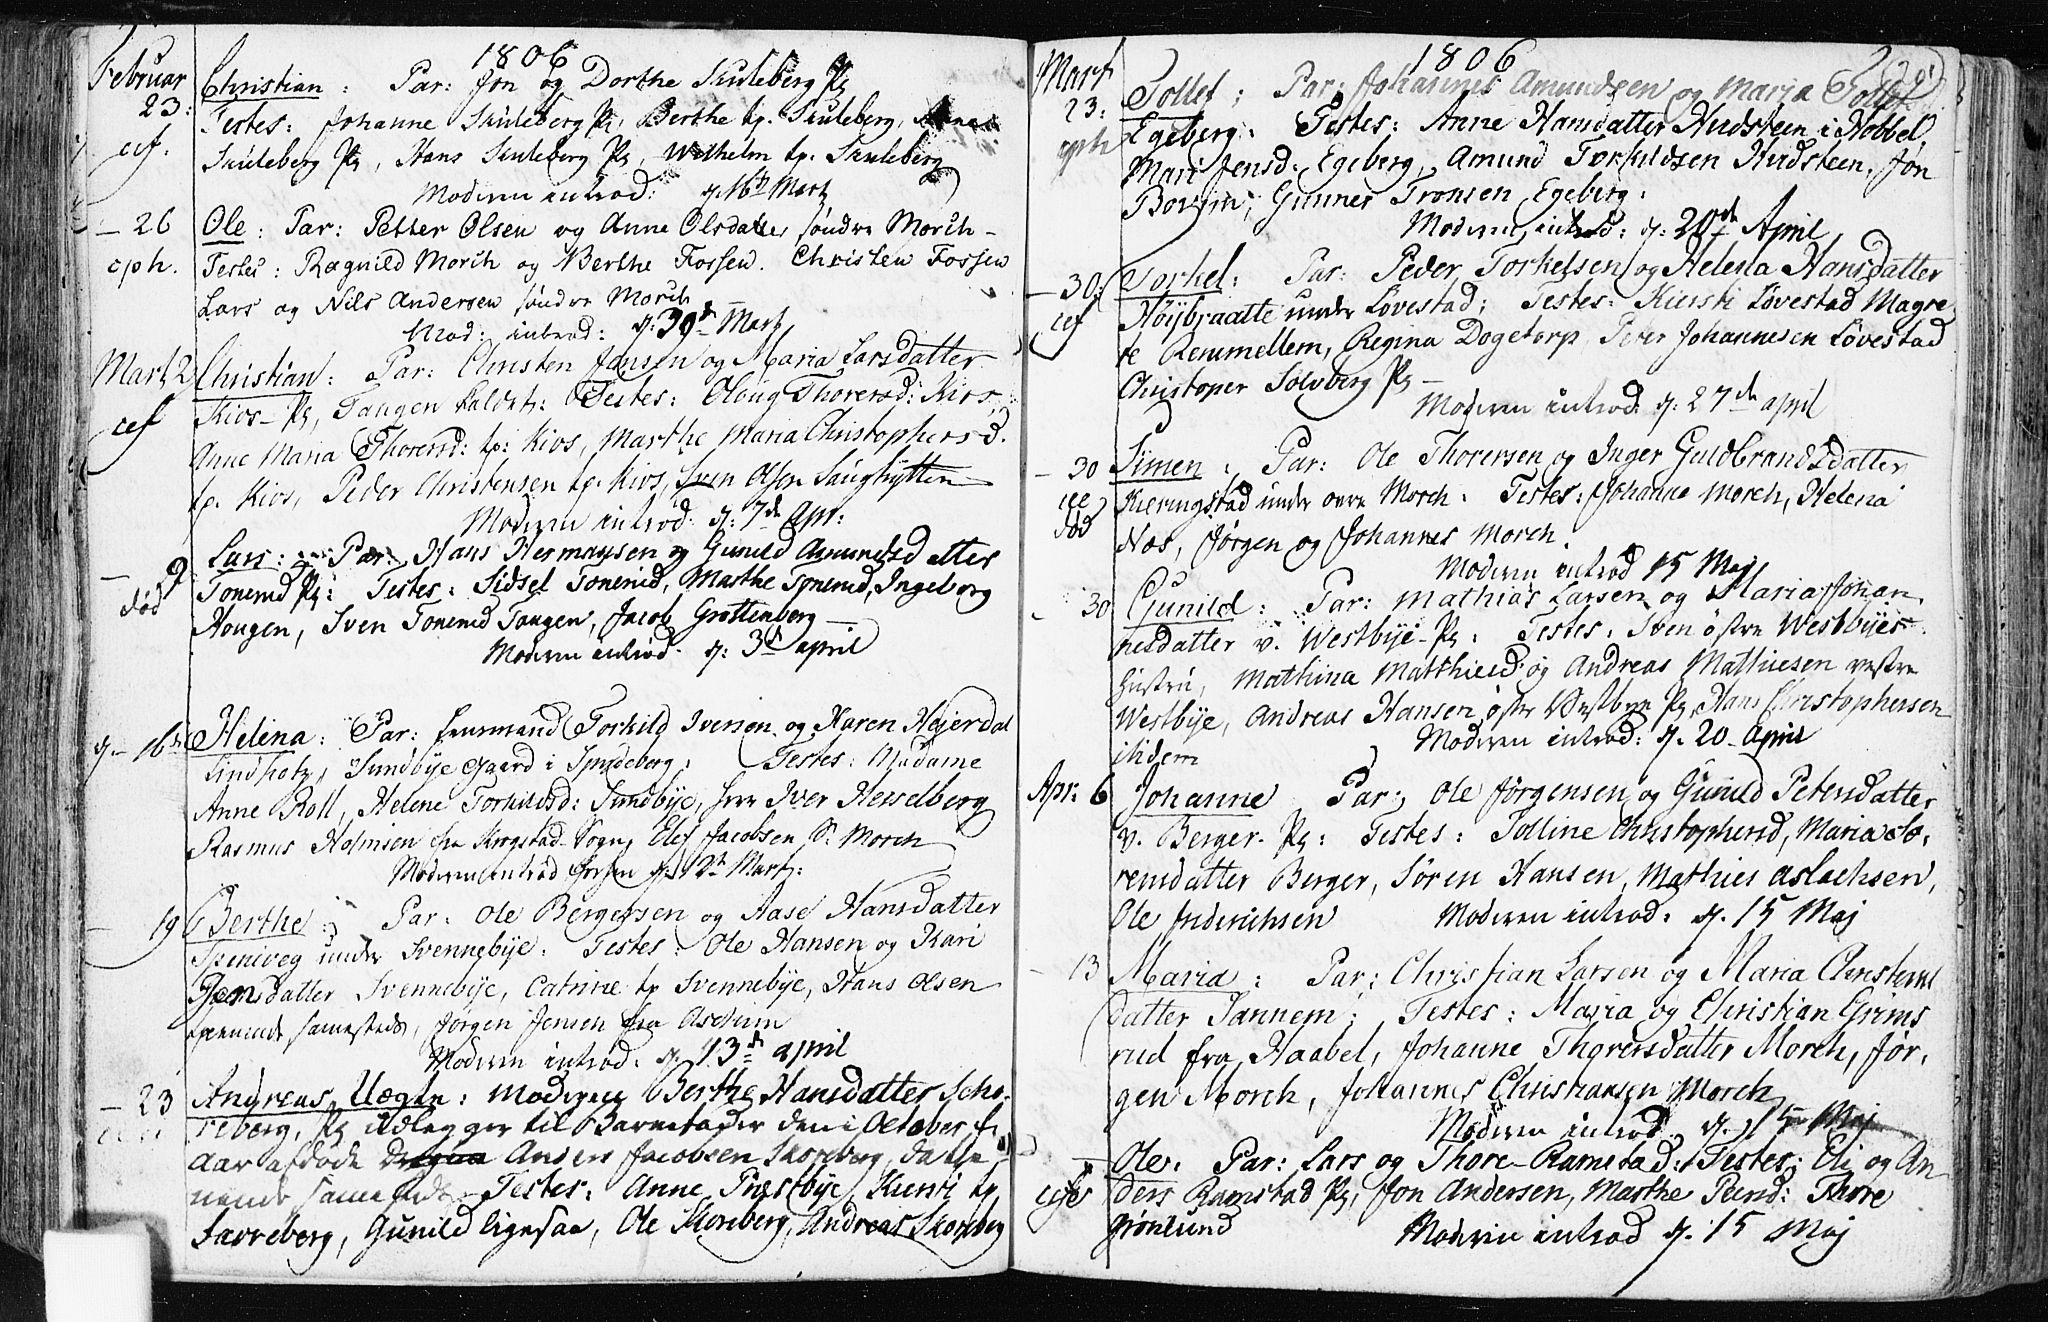 1806
Februar Christian: Par: Jon og Dorthe Skuleberg Pg
23: Testes: Johanne Skuleberg Pg, Berthe tp. Skuleberg, Anne
cef. Skuleberg Pg, Hans Skuleberg Pg, Wilhelm tp. Skuleberg
Moderen introd: d. 16d Mart
— 26 Ole: Par: Petter Olsen og Anne Olsdatter søndre Morch –
eph. Testes: Ragnild Morch og Berthe Fossen. Christen Fossen
Lars og Nils Andersen søndre Morch
Mod: introd: d: 30d Mart
Mart 2 Christian: Par: Christen Jansen og Maria Larsdatter
Kios – Pg, Taugen kaldet: Testes: Oloug Thoresd: Kios,
cef Anne Maria Thoresd: tp: Kios, Marthe Maria Christophersd.
tp. Kios, Peder Christensen tp. Kios, Sven Olsen Saughytten
Moderen introd: d: 7de Apr:
— 9 Lars: Par: Hans Hermansen og Gunild Amundsdatter
død Tonerud Pg: Testes: Sidsel Tonerud, Marthe Tonerud, Ingeborg
Hougen, Sven Tonerud Taugen, Jacob Grottenberg —
Moderen introd. d: 3d april
d – 16d Helena: Par: Lensmand Torkild Iverson og Karen Hejerdal
Lindholz, Sundbye Gaard i Spydeberg: Testes: Madame
Anne Roll, Helene Torkildsd: Sundbye, Herr Iver Hesselberg
Rasmus Holmsen fra Krogstad Sogn, Elef Jacobsen S. Morch
Moderen introd d. 12te Mart:
— 19 Berthe: Par: Ole Bergersen og Aase Hansdatter
under Svennebye: Testes: Ole Hansen og Kari
Jensdatter Svennebye, Catrine tp Svennebye, Hans Olsen
tienende samesteds, Jørgen Jensen fra Aschum
Moderen introd. d. 13de april
— 23 Andreas Uægte: Moderen Berthe Hansdatter Sko-
reberg, Pg udlægger til Barnefader den i October f.
Aar afdøde Anders Jacobsen Skoreberg, da tie-
nende samesteds – Testes: Anne Præstbye, Kiersti tp.
Favreberg, Gunild ligesaa, Ole Skoreberg, Andreas Skoreberg
1806
Mart Tollef: Par: Johannes Amundsen og Maria
23: Egeberg: Testes: Anne Hansdatter Hudsteen i Hobbel,
eph Mari Jensd: Egeberg, Amund Torkildsen Hudsteen, Jon
Bovim, Gunner Tronsen Egeberg:
Moderen introd: d: 20de April
— 30: Torkel: Par: Peder Torkelsen og Helena Hansdatter
cef Høijbraatte under Løvestad: Testes: Kiersti Løvestad Magre-
te Remmellem, Regina Dogetorp, Peter Johannesen Løvestad
Christoper Solvberg Pg –
Moderen introd: d. 27de april
— 30 Simen: Par: Ole Thorersen og Inger Guldbrandsdatter
cef Kieringstad under øvre Morch: Testes: Johanne Morch, Helena
død Nos, Jørgen og Johannes Morch.
Moderen introd 15 Maj
— 30 Gunild: Par: Mathias Larsen og Maria Johan-
nesdatter v. Westbye – Pg: Testes: Sven østre Westbyes
Hustru, Mathina Matthiesd: og Andreas Mathiesen vestre
Westbye, Andreas Hansen østre Vestbye Pg, Hans Christophersen
ibidem Moderen introd: d. 20 – April
Apr: 6 Johanne Par: Ole Jørgensen og Gunild Petersdatter
v. Berger. Pg: Testes: Tolline Christophersd, Maria Sø-
rensdatter Berger, Søren Hansen, Mathies Aslachsen,
Ole Friderichsen Moderen introd: d. 15 Maj
— 13 Maria: Par: Christian Larsen og Maria Christens
datter Sannem: Testes: Maria og Christian Grims
rud fra Haabel, Johanne Thorersdatter Morch, Jør-
gen Morch, Johannes Christiansen Morch
Moderen introd. d. 15 Maj
— Ole: Par: Lars og Thore – Ramstad: Testes: Eli og An-
ders Ramstad Pg, Jon Andersen, Marthe Peersd: Thore
Grønlund Moderen introd d. 15 Maj